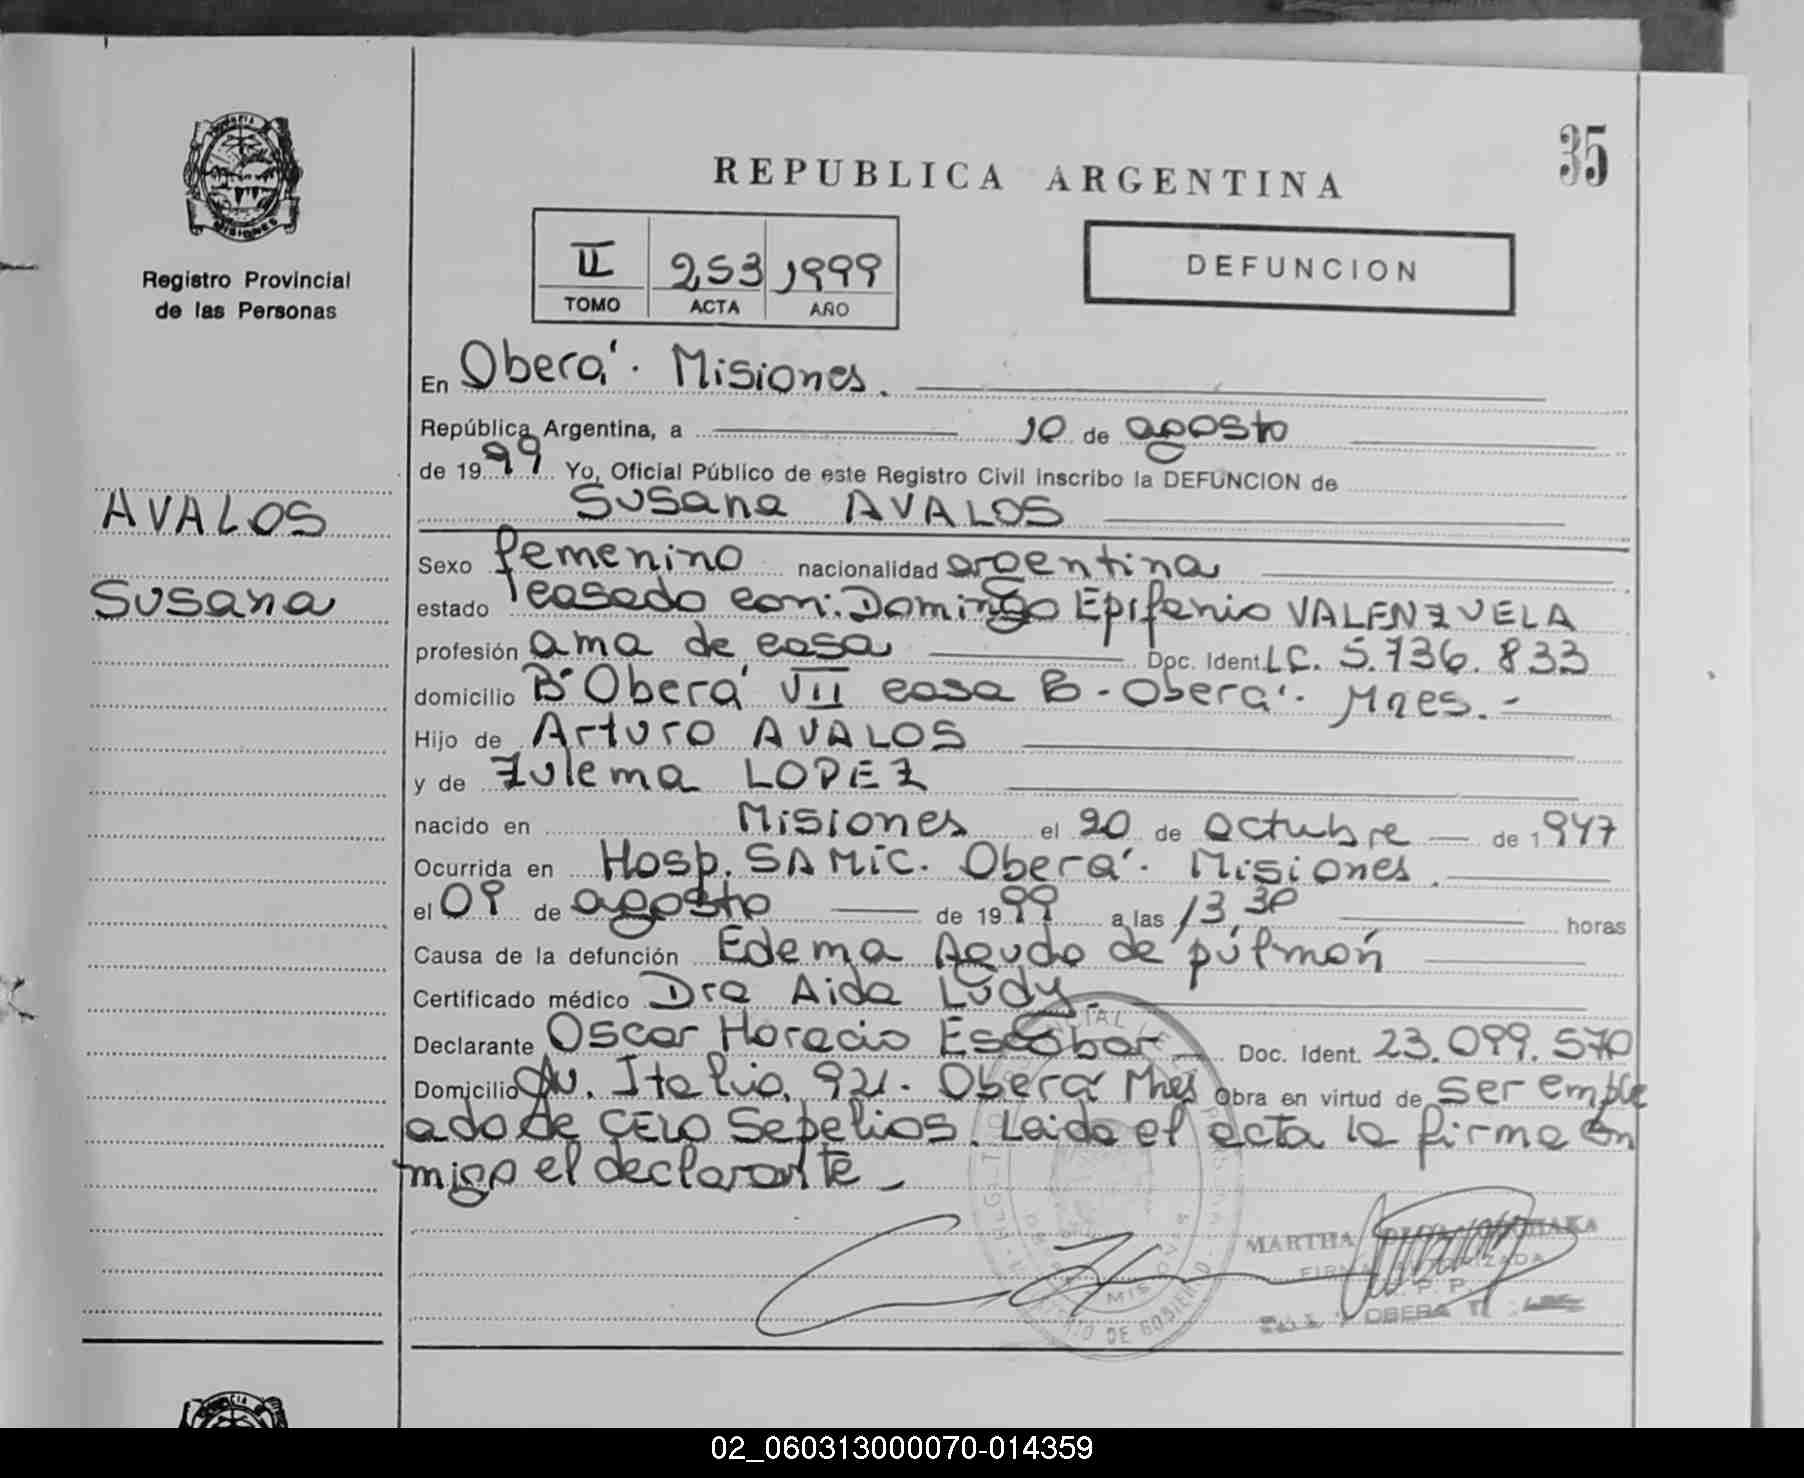 35
REPUBLICA ARGENTINA
II 253 1999
TOMO ACTA AÑO
DEFUNCION
PROVINCIA DE
MISIONES
Registro Provincial
de las Personas
AVALOS
Susana
En Oberá. Misiones.
República Argentina, a 10 de agosto
de 1999 Yo, Oficial Público de este Registro Civil inscribo la DEFUNCION de
Susana AVALOS
Sexo femenino nacionalidad argentina
estado casado con: Domingo Epifanio VALENZUELA
profesión ama de casa Doc. Ident. LC. 5.736.833
domicilio B° Oberá VII casa B - Oberá. Mnes. -
Hijo de Arturo AVALOS
y de Zulema LOPEZ
nacido en Misiones el 20 de octubre de 1947
Ocurrida en Hosp. SAMIC. Oberá. Misiones.
el 09 de agosto de 1999 a las 13 30 horas
Causa de la defunción Edema Agudo de púlmón
Certificado médico Dra Aida Lúdy
Declarante Oscar Horacio Escobar Doc. Ident. 23.099.570
Domicilio Av. Italia. 921. Oberá Mnes Obra en virtud de ser emple
ado de CELO Sepelios. Leida el acta la firma con
migo el declarante -
MARTHA
FIRMA AUTORIZADA
OBERA
02_060313000070-014359